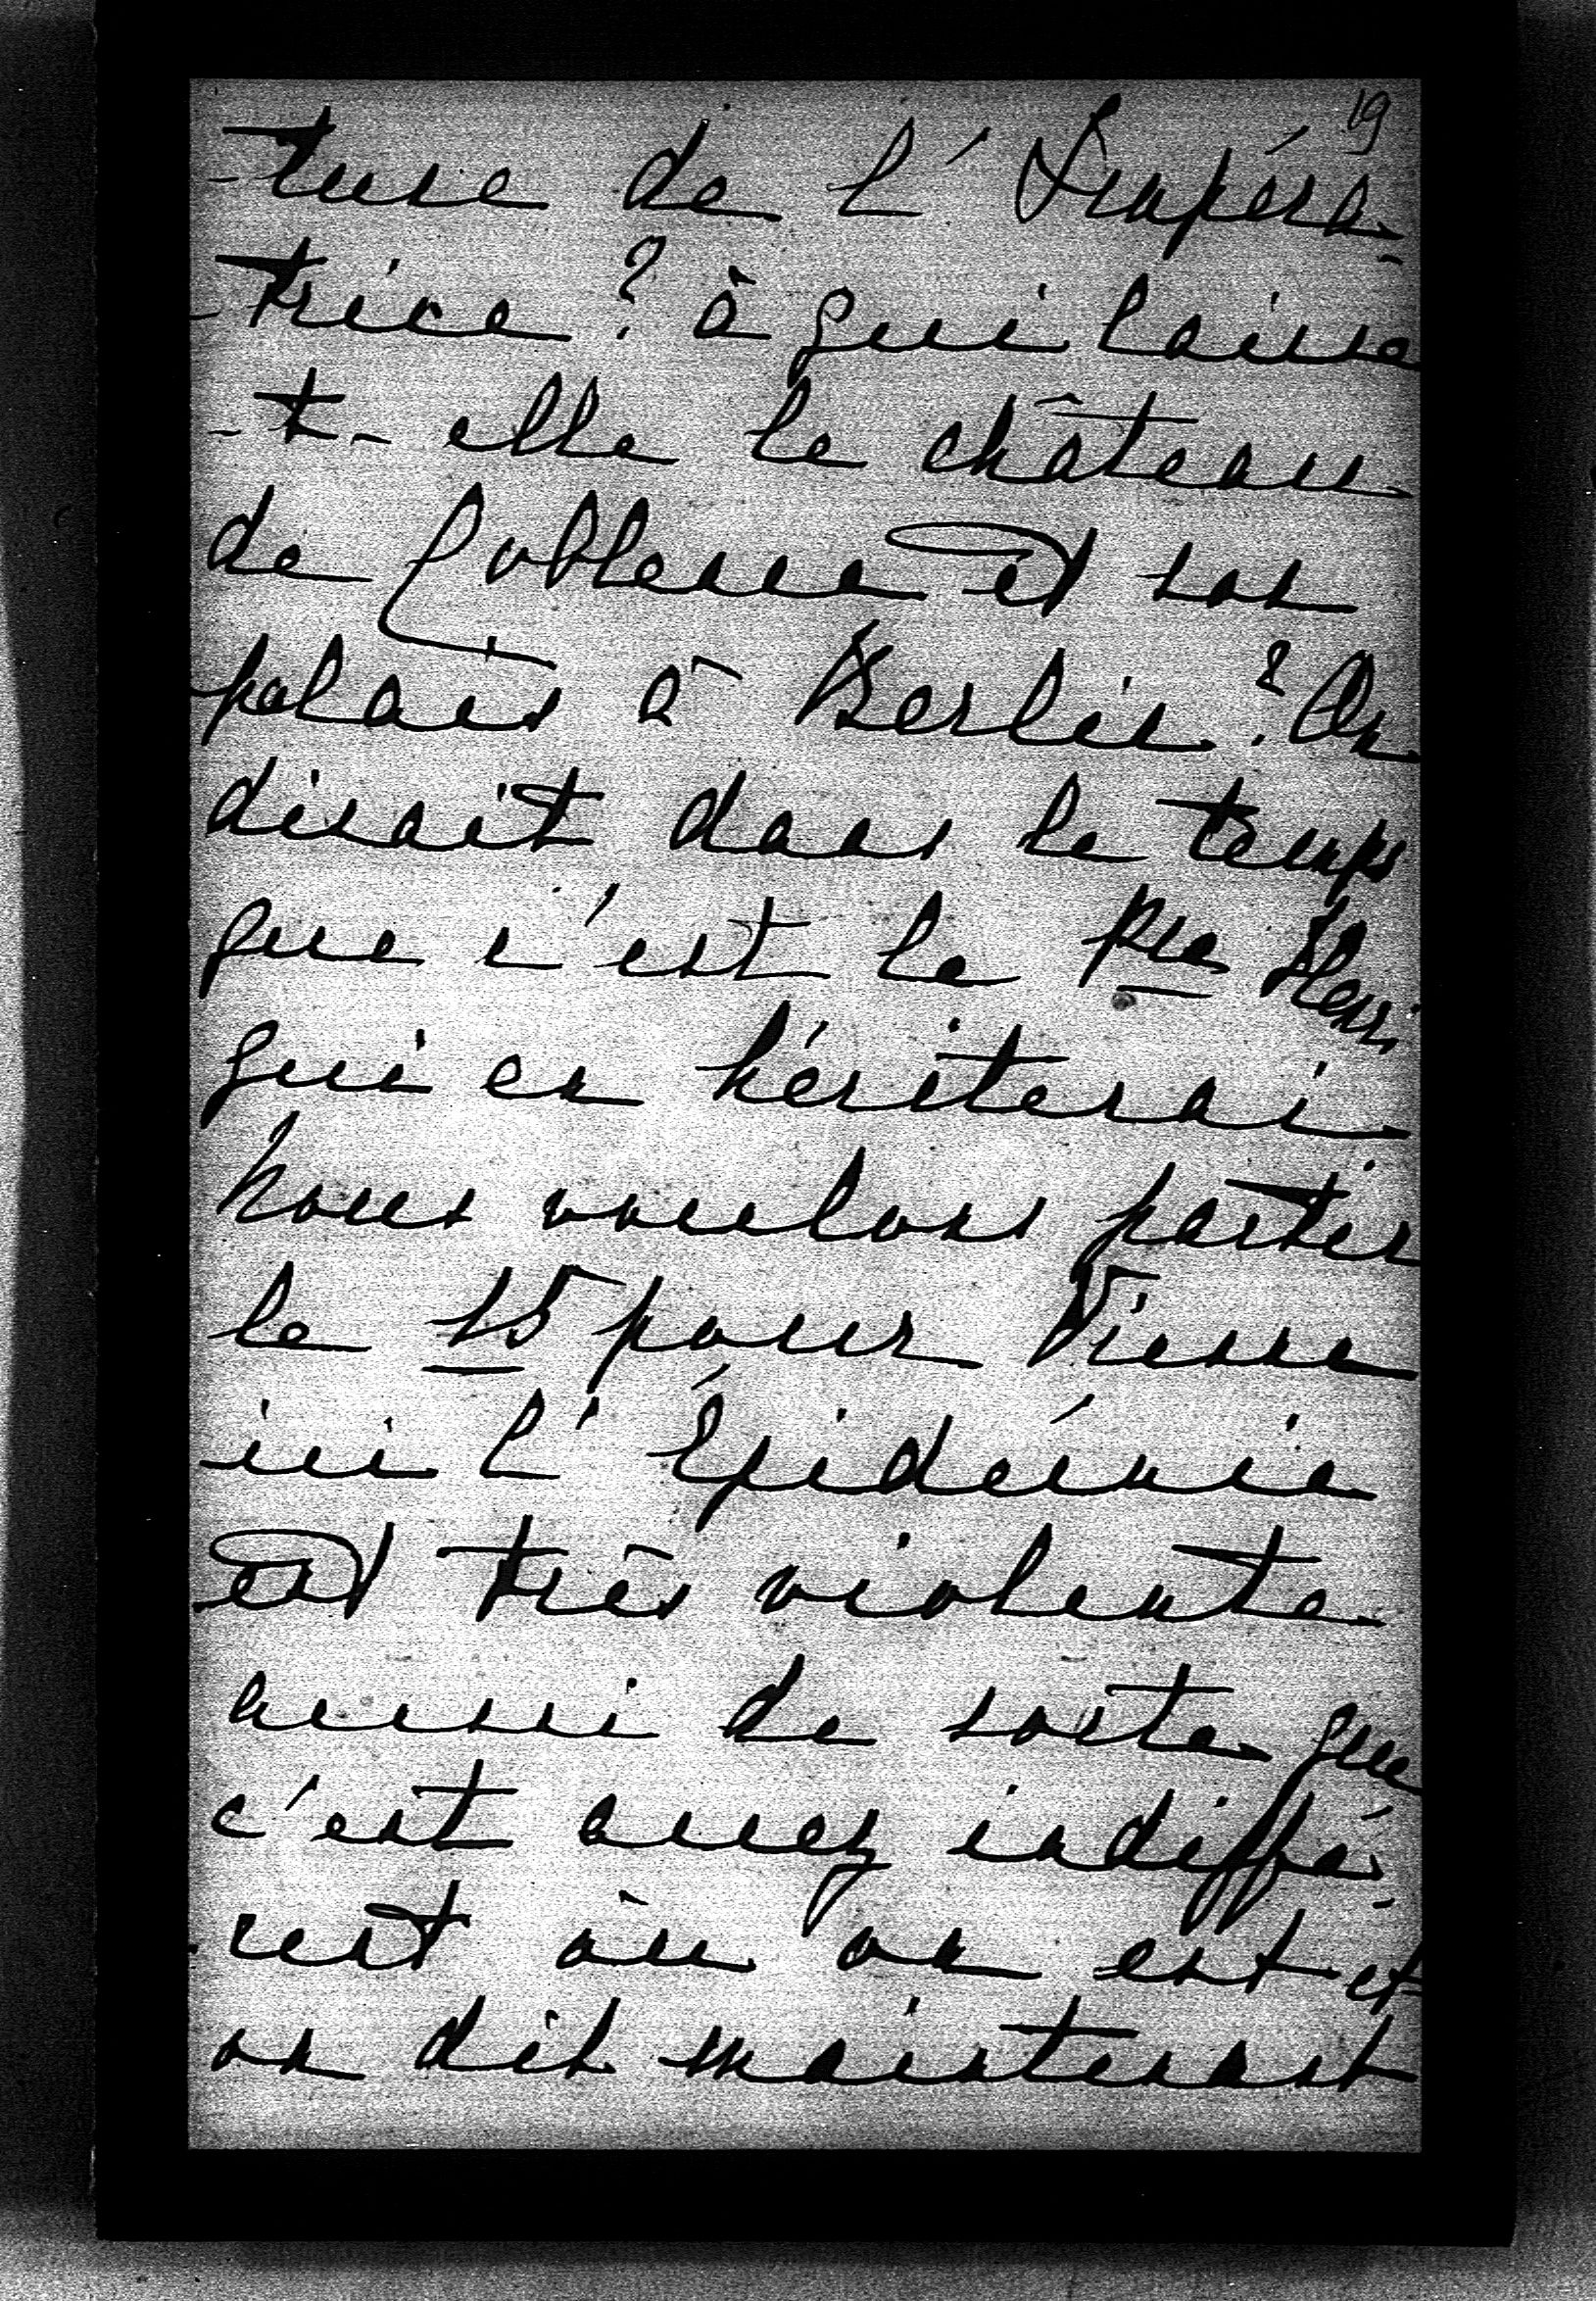 19
-ture de l'Impéra-
-trice? à qui laisse
-t-elle le château
de Coblence et son
palais à Berlin? On
disait dans le temps
que c'est le Pce Henri
qui en hériterai
Nous voulons partir
le 15 pour Vienne
ici l'Épidémie
est très violente
aussi de sorte que
c'est assez indiffé-
-rent où on est et
on dit maintenant